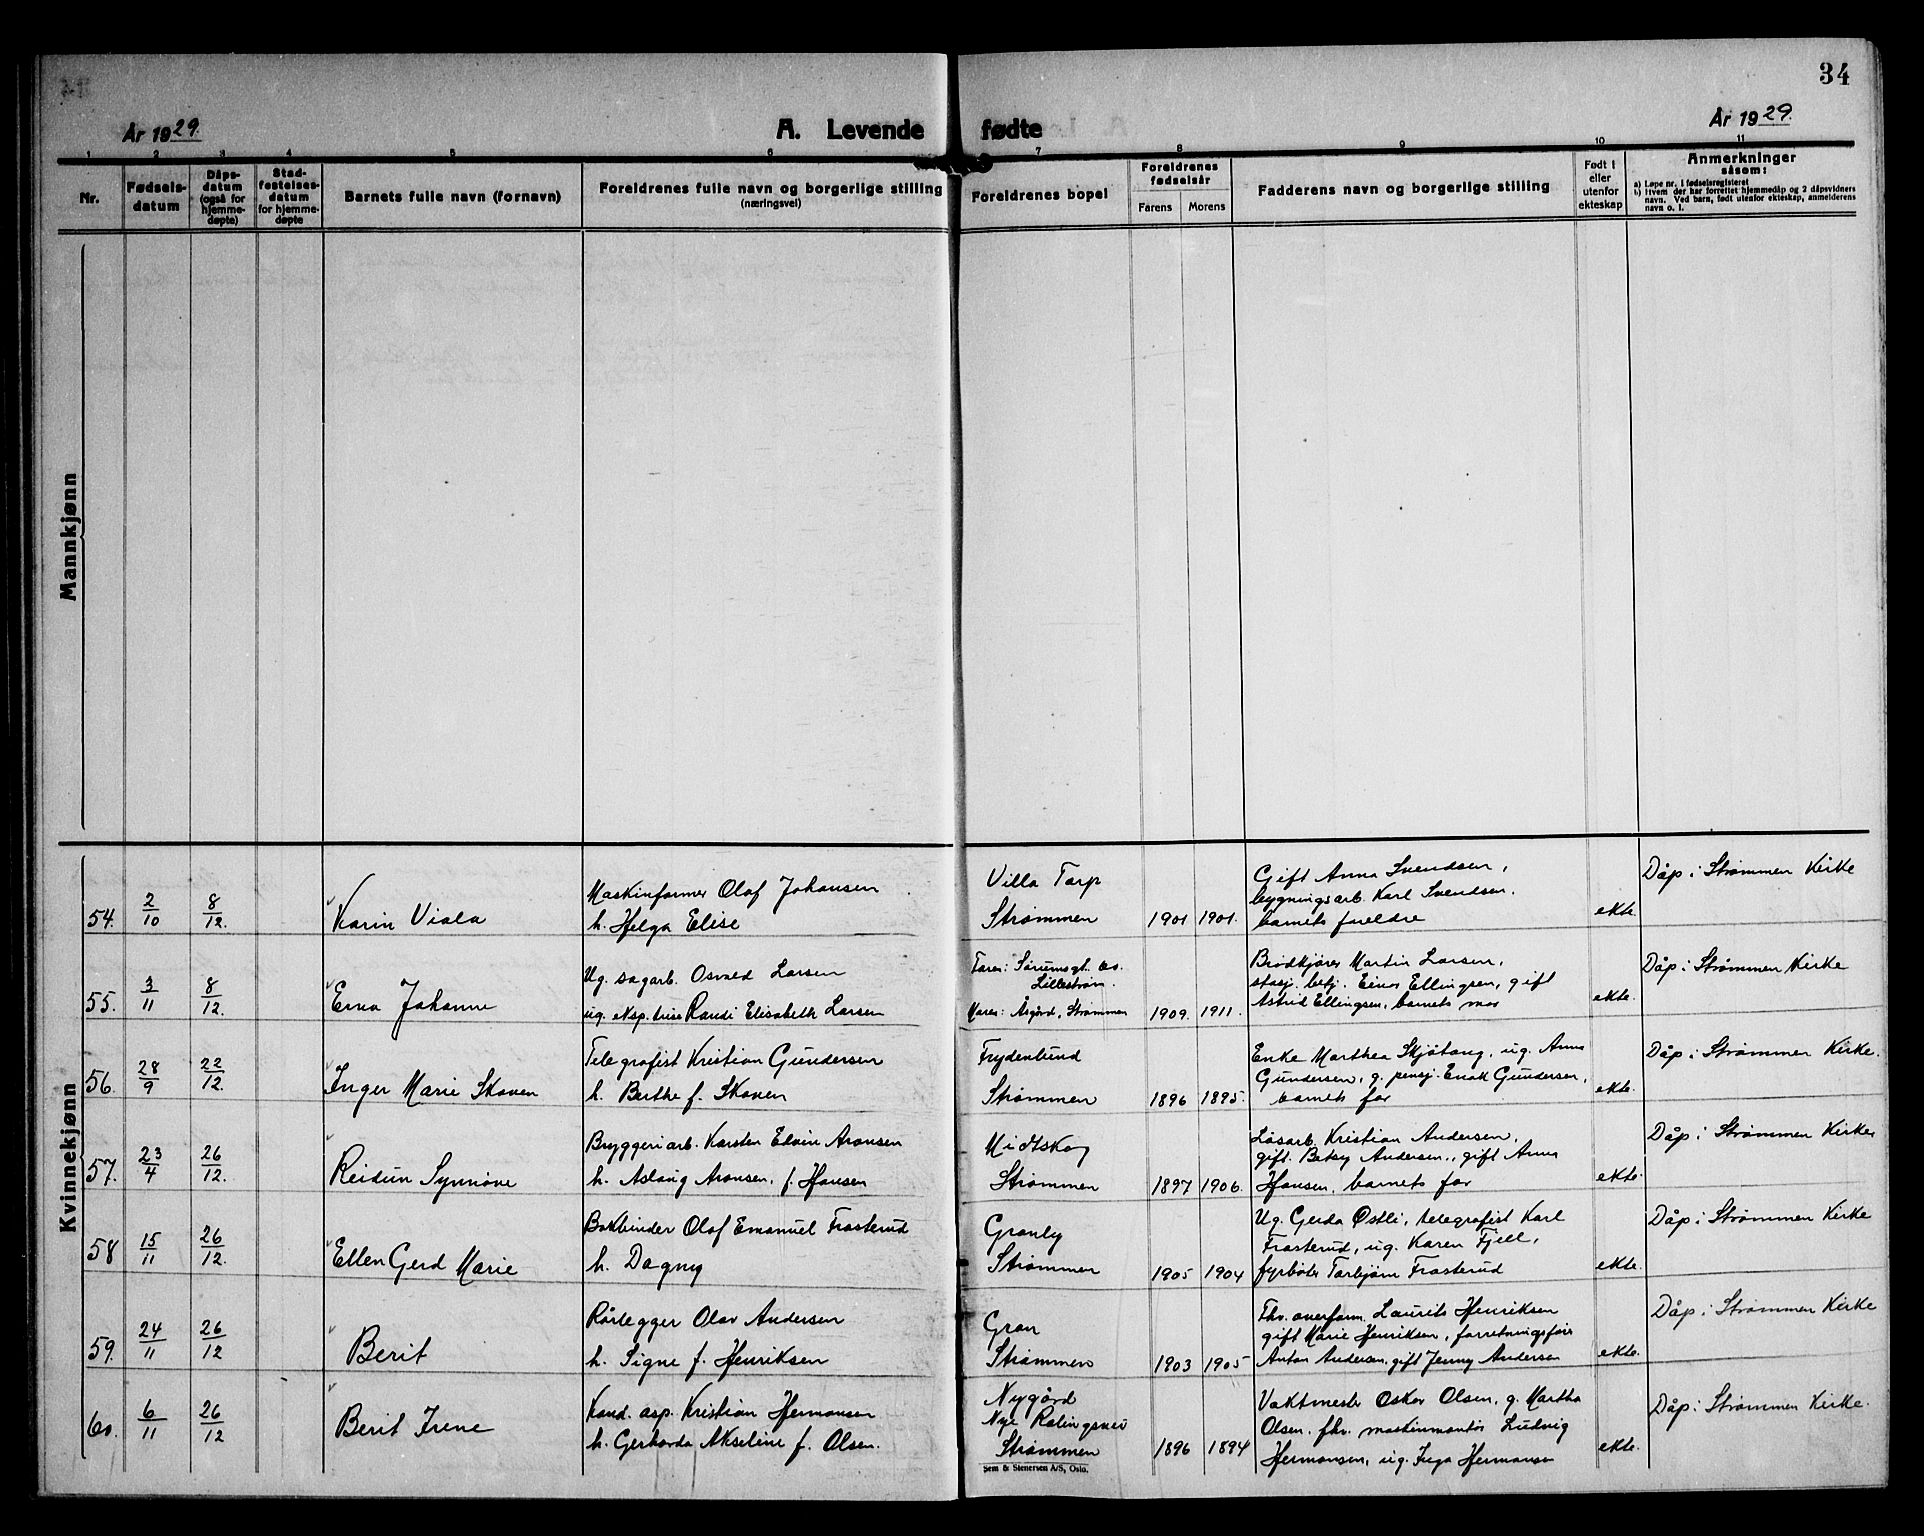 34
År 1929.
A. Levende fødte
År 1929.
1 2 3 4 5 6 7 8 9 10 11
Nr.
Fødsels-
datum
Dåps-
datum
(også for
hjemme-
døpte)
Stad-
festelses-
datum
for hjemme-
døpte
Barnets fulle navn (fornavn)
Foreldrenes fulle navn og borgerlige stilling
(næringsvei)
Foreldrenes bopel
Foreldrenes
fødselsår
Farens Morens
Fadderens navn og borgerlige stilling
Født i
eller
utenfor
ekteskap
Anmerkninger
såsom:
a) Løpe nr. i fødselsregisteret
b) Hvem der har forrettet hjemmedåp og 2 dåpsvidners
navn. Ved barn, født utenfor ekteskap, anmelderens
navn o. l.
Mannkjønn
Kvinnekjønn
54. 2/10 8/12.
Karin Viola
Maskinformer Olaf Johansen
h. Helga Elise
Villa Tarp
Strømmen
1901 1901.
Gift Anna Svendsen,
bygningsarb. Karl Svendsen.
barnets foreldre
ekte.
Dåp i Strømmen Kirke
55. 3/11 8/12.
Erna Johanne
Ug. sagarb. Osvald Larsen
ug. eksp.trise Randi Elisabeth Larsen
Faren: Sørumsgt.
Lillestrøm.
Moren: Åsgård, Strømmen
1909. 1911.
Brødkjører Martin Larsen,
stasj. betj. Einar Ellingsen, gift
Astrid Ellingsen, barnets mor
ekte.
Dåp i Strømmen Kirke
56. 28/9 22/12.
Inger Marie Skoven
Telegrafist Kristian Gundersen
h. Berthe f. Skoven
Frydenlund
Strømmen
1896 1895.
Enke Marthea Skjøtang, ug. Anna
Gundersen, g. pensj. Enok Gundersen,
barnets far
ekte.
Dåp i Strømmen Kirke.
57. 23/4 26/12.
Reidun Synnøve
Bryggeriarb. Karsten Elvin Aronsen
h. Aslaug Aronsen, f. Hansen
Midtskog
Strømmen
1897 1906.
Løsarb. Kristian Andersen,
gift. Betsy Andersen, gift Anna
Hansen, barnets far
ekte.
Dåp i Strømmen Kirke
58 15/11 26/12.
Ellen Gerd Marie
Bokbinder Olaf Emanuel Frosterud
h. Dagny
Granly
Strømmen
1905 1904
Ug. Gerda Østli, telegrafist Karl
Frosterud, ug. Karen Fjell,
fyrbøter Torbjørn Frosterud
ekte.
Dåp i Strømmen Kirke
59. 24/11 26/12
Berit
Rørlegger Olav Andersen
h. Signe f. Henriksen
Gran
Strømmen
1903 1905
Fhv. overform. Laurits Henriksen
gift Marie Henriksen, forretningsfører
Anton Andersen, gift Jenny Andersen
ekte.
Dåp i Strømmen Kirke
60. 6/11 26/12
Berit Irene
Kand. asp. Kristian Hermansen
h. Gerharda Akseline f. Olsen.
Nygård
Nye Rælingsvei
Strømmen
1896 1894
Vaktmester Oskar Olsen, g. Martha
Olsen. fhv. maskinmontør Ludvig
Hermansen, ug. Inga Hermansen
ekte.
Dåp i Strømmen Kirke.
Sem & Stenersen A/S, Oslo.